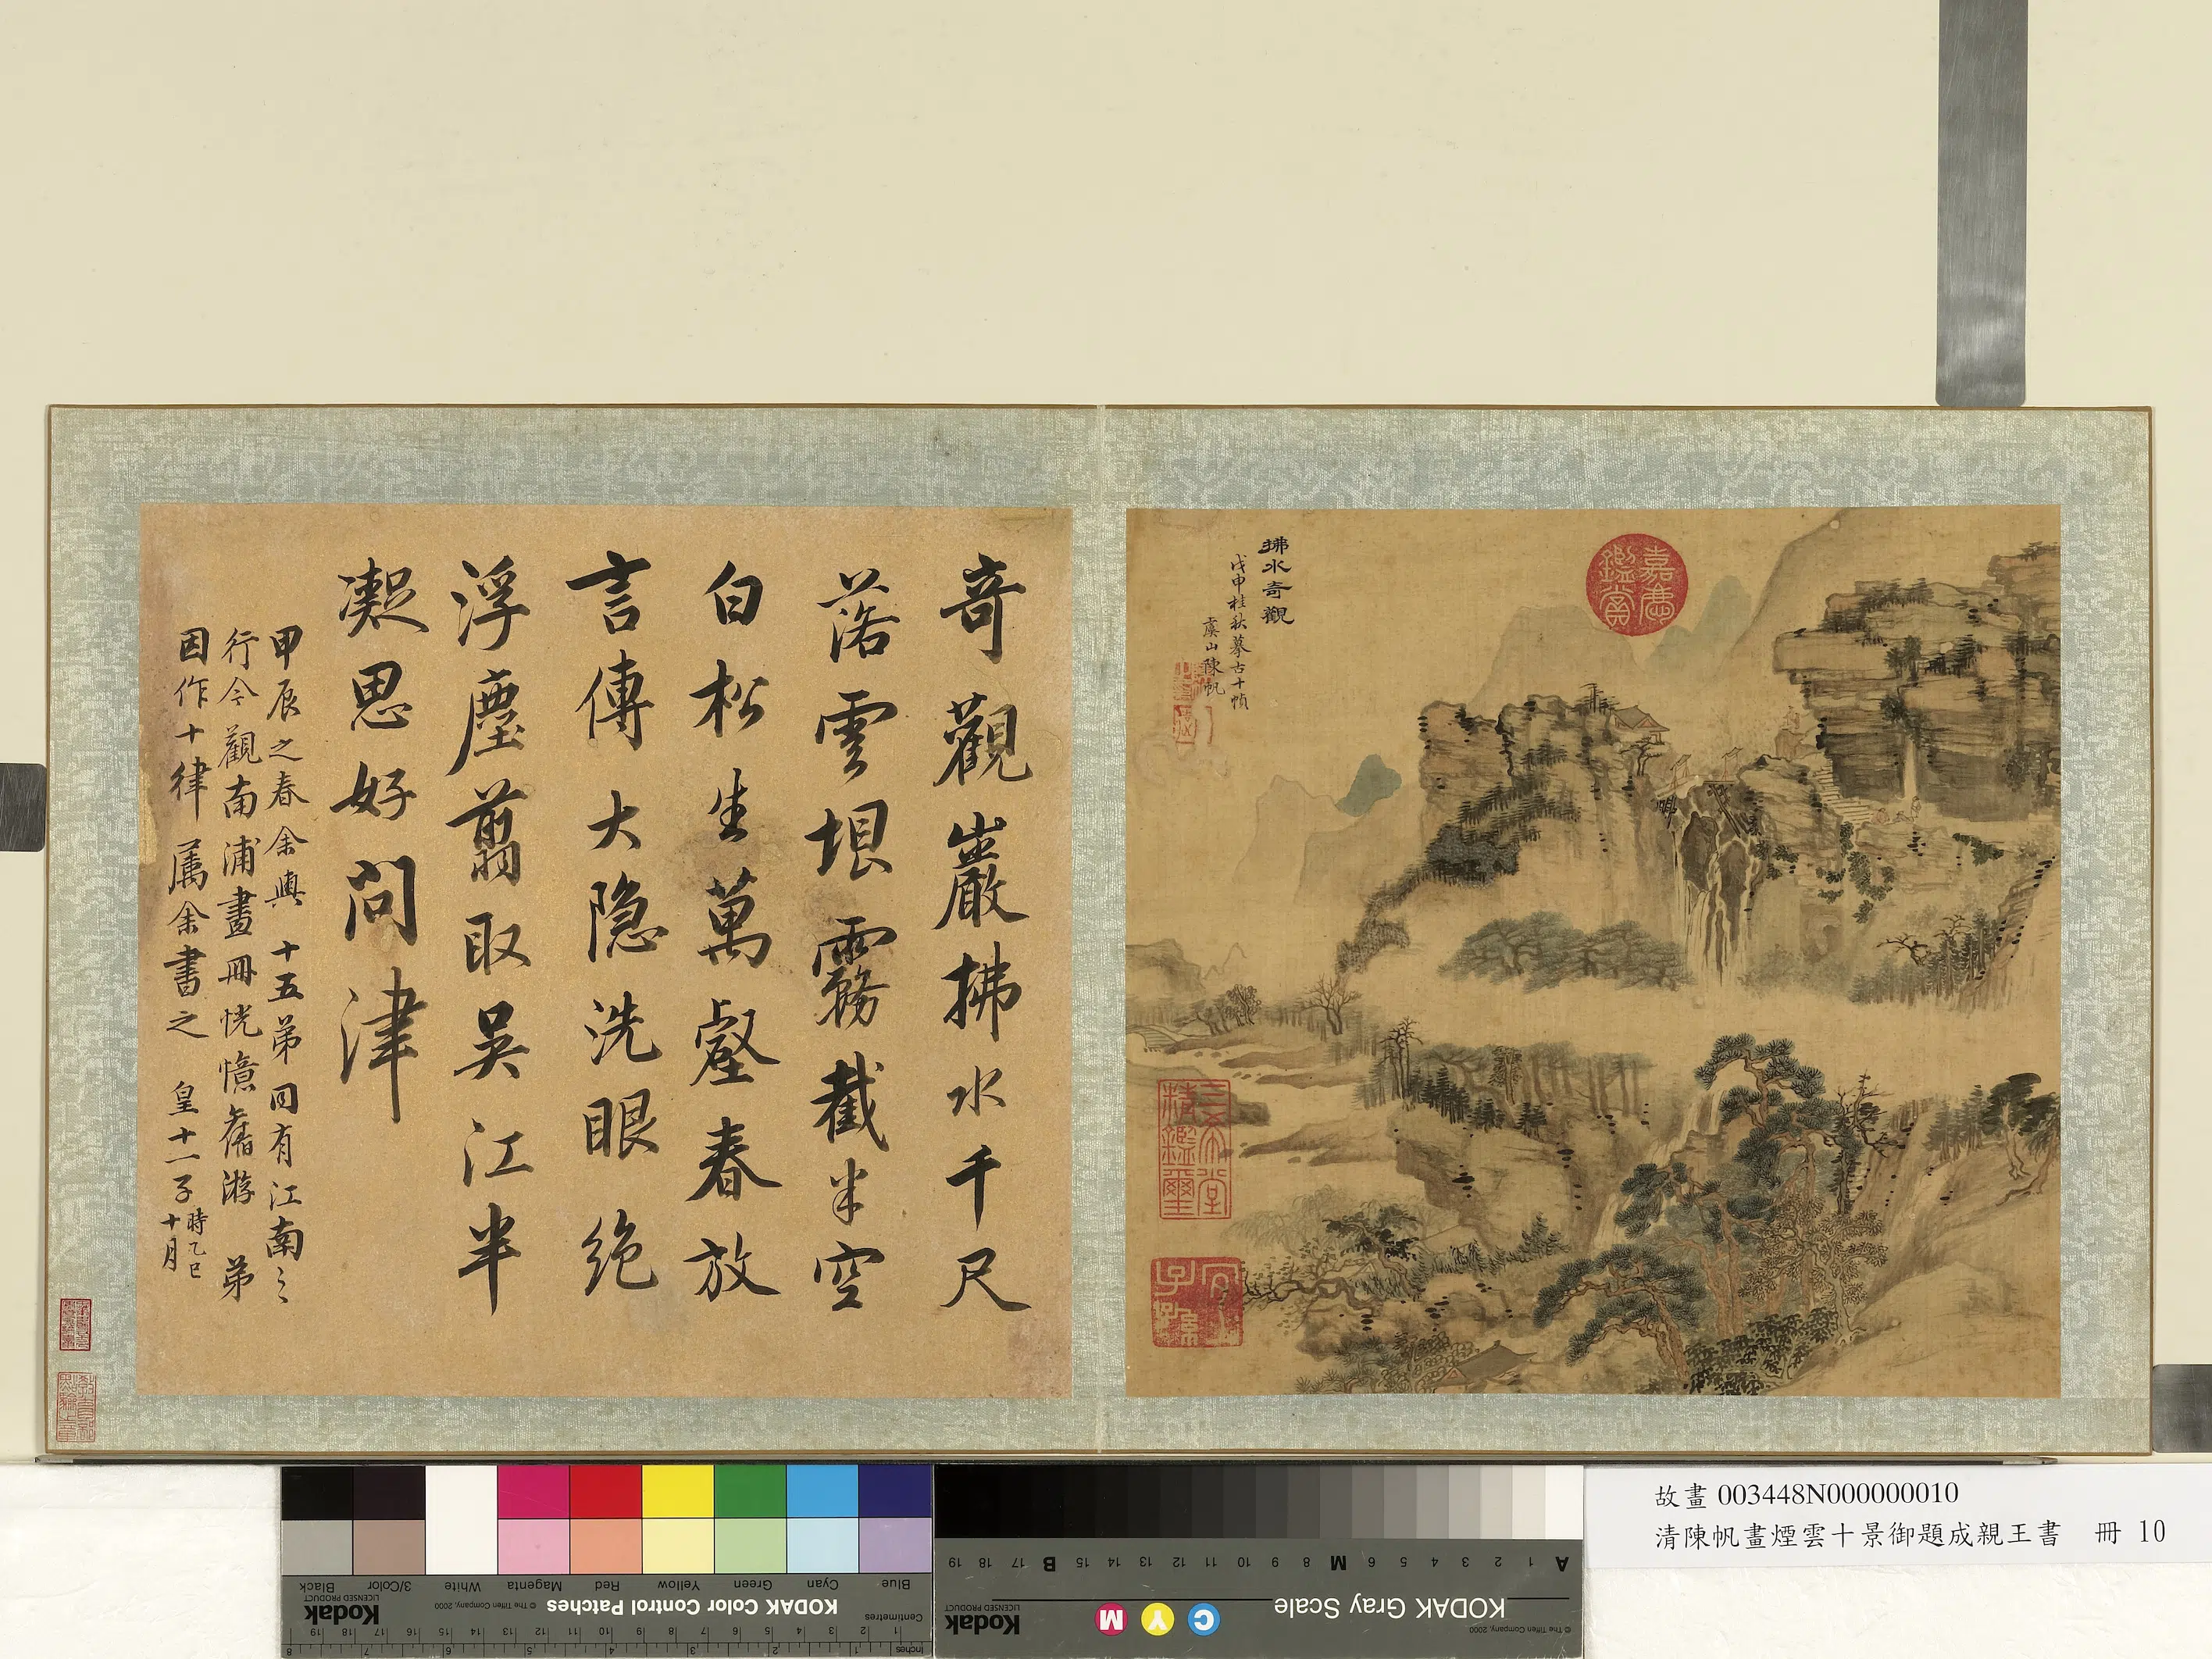 拂水奇觀
戊申桂秋摹古十幀
虞山陳帆
嘉慶
鑑賞
三希堂
精鑑璽
宜
子孫
奇觀巖拂水千尺
落雲垠霧截半空
白松生萬壑春放
言傳大隱洗眼絶
浮塵翦取吳江半
凝思好問津
甲辰之春余與十五弟同有江南之
行今觀南浦畫冊恍憶舊游弟
因作十律屬余書之 皇十一子時乙巳
十月
故畫 003448N000000010
清陳帆畫煙雲十景御題成親王書 冊 10
Blue
Cyan
Green
Yellow
Red
Magenta
White
3/Color
Black
KODAK Color Control Patches
© The Tiffen Company, 2000
Kodak
LICENSED PRODUCT
Centimetres
Inches
A 1 2 3 4 5 6 M 8 9 10 11 12 13 14 15 B 17 18 19
KODAK Gray Scale
C Y M
Kodak
LICENSED PRODUCT
© The Tiffen Company, 2000